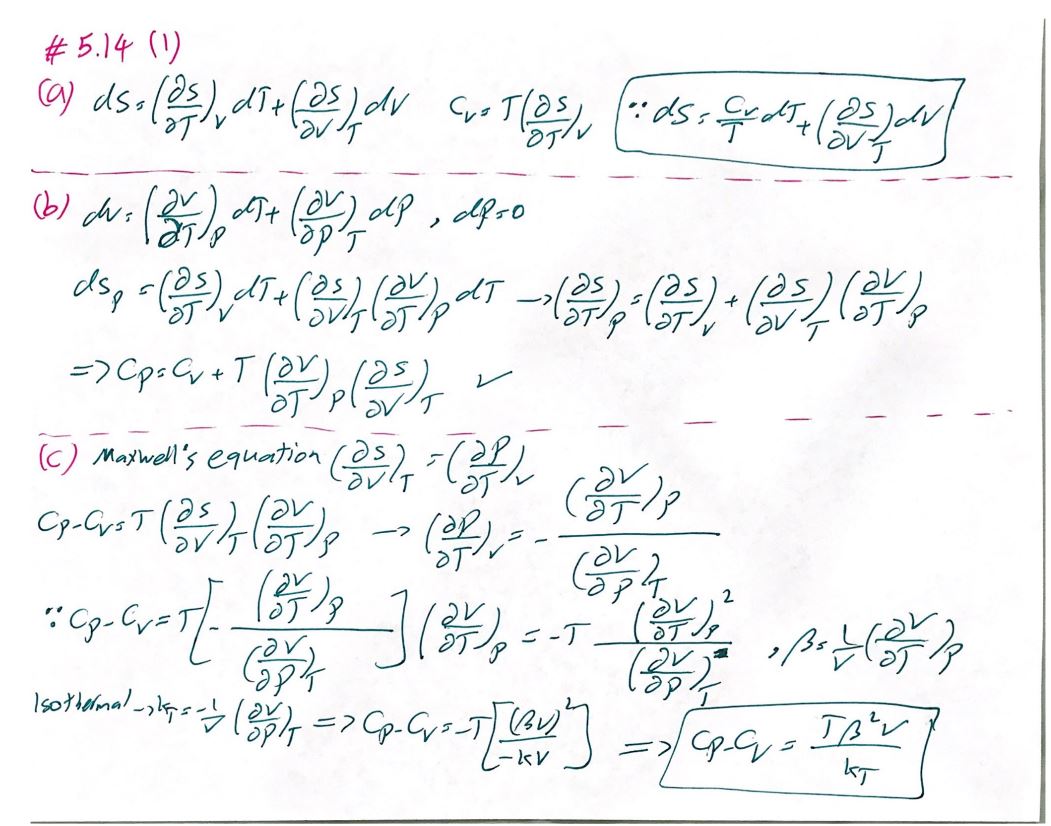 # 5.14 (1)
(a) dS = (∂S/∂T)_V dT + (∂S/∂V)_T dV   C_V = T(∂S/∂T)_V   ∵ dS = C_V/T dT + (∂S/∂V)_T dV
(b) dV = (∂V/∂T)_P dT + (∂V/∂P)_T dP , dP = 0
dS_P = (∂S/∂T)_V dT + (∂S/∂V)_T (∂V/∂T)_P dT → (∂S/∂T)_P = (∂S/∂T)_V + (∂S/∂V)_T (∂V/∂T)_P
=> C_P = C_V + T (∂V/∂T)_P (∂S/∂V)_T ✓
(c) Maxwell's equation (∂S/∂V)_T = (∂P/∂T)_V
C_P - C_V = T (∂S/∂V)_T (∂V/∂T)_P → (∂P/∂T)_V = - (∂V/∂T)_P / (∂V/∂P)_T
∵ C_P - C_V = T [ - (∂V/∂T)_P / (∂V/∂P)_T ] (∂V/∂T)_P = -T (∂V/∂T)_P² / (∂V/∂P)_T , β = 1/V (∂V/∂T)_P
Isothermal → k_T = -1/V (∂V/∂P)_T => C_P - C_V = -T [ (βV)² / -kV ] => C_P - C_V = Tβ²V / k_T